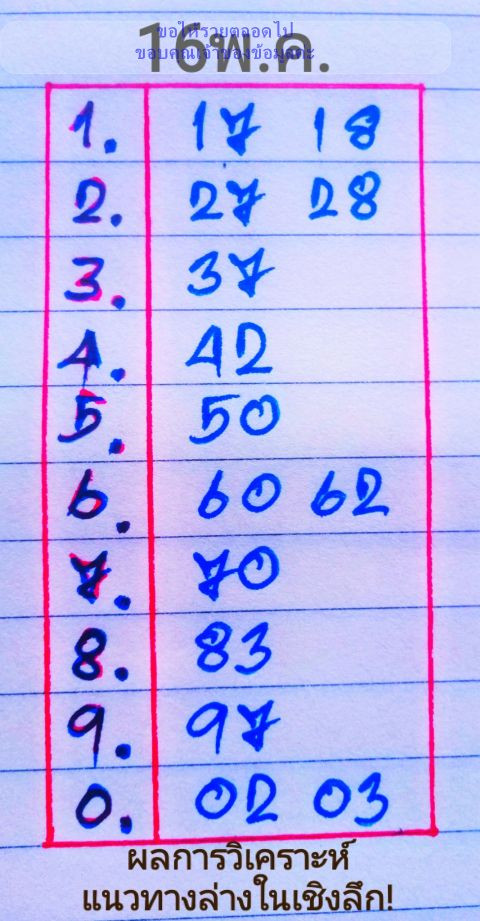 ขอให้รวยตลอดไป
16พ.ค.
ขอบคุณเจ้าของข้อมูลค่ะ
1. 17 18
2. 27 28
3. 37
4. 42
5. 50
6. 60 62
7. 70
8. 83
9. 97
0. 02 03
ผลการวิเคราะห์
แนวทางล่างในเชิงลึก!